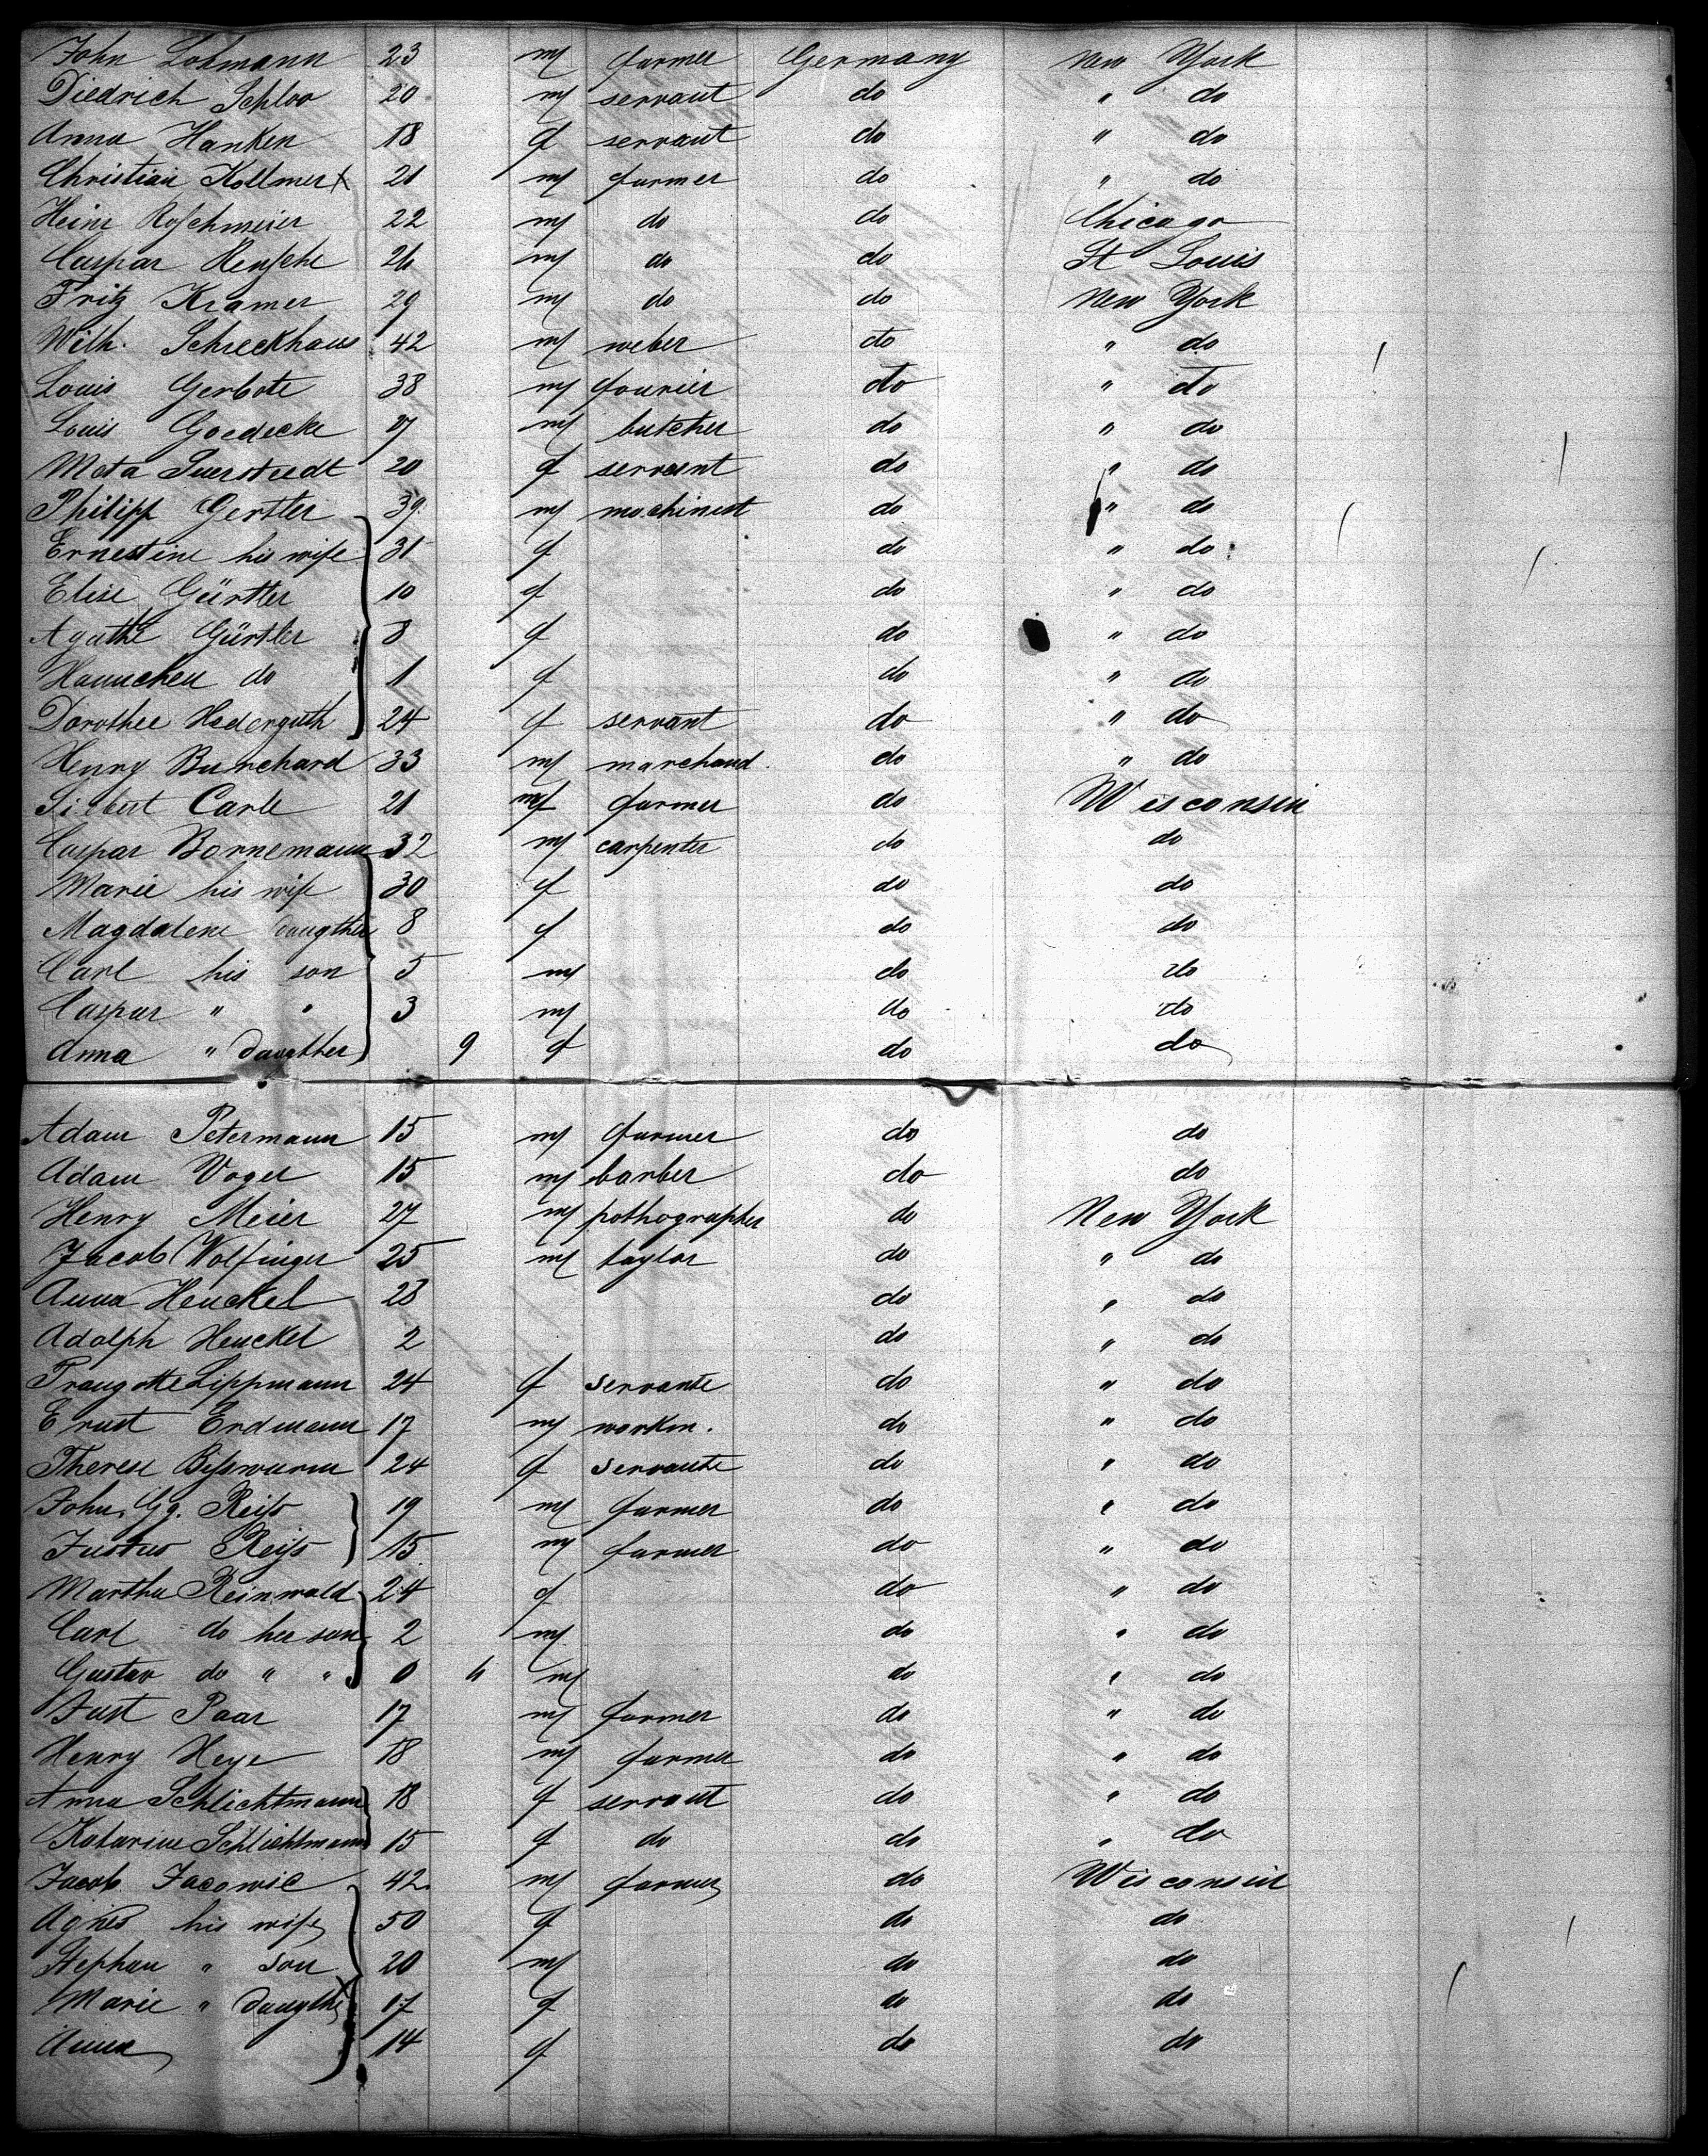 John Lohmann 23 m farmer Germany New York
Diedrich Schloo 20 m servant do " do
Anna Hanken 18 f servant do " do
Christian Kollmer 21 m farmer do " do
Heinr Roschmeier 22 m do do Chicago
Caspar Hensche 26 m do do St Louis
Fritz Kramer 29 m do do New York
Wilh. Schreckhaus 42 m weber do " do
Louis Gerbote 38 m fourier do " do
Louis Goedecke 27 m butcher do " do
Meta Suerstedt 20 f servent do " do
Philipp Gertler 39 m machinest do " do
Ernestine his wife 31 f do " do
Elise Gürtler 10 f do " do
Agathe Gürtler 8 f do " do
Hannchen do 1 f do " do
Dorothee Hederguth 24 f servant do " do
Henry Burchard 33 m marchand. do " do
Siebert Carle 21 m farmer do Wisconsin
Caspar Bornemann 32 m carpenter do do
Marie his wife 30 f do do
Magdalene daugther 8 f do do
Carl his son 5 m do do
Caspar " " 3 m do do
Anna " daugther 9 f do do
Adam Petermann 15 m farmer do do
Adam Voger 15 m barber do do
Henry Meier 27 m pothographer do New York
Jacob Wolfinger 25 m taylor do " do
Anna Henckel 28 do " do
Adolph Henckel 2 do " do
Traugotte Lippmann 24 f servante do " do
Ernst Erdmann 17 m workm. do " do
Therese Bisswurm 24 f servante do " do
John Gg. Reiss 19 m farmer do " do
Justus Reiss 15 m farmer do " do
Martha Reinwald 24 f do " do
Carl do her son 2 m do " do
Gustav do " " 0 m do " do
Just Paar 17 m farmer do " do
Henry Heye 18 m farmer do " do
Anna Schlichtmann 18 f servant do " do
Katarine Schlichtmann 15 f do do " do
Jacob Jacowic 42. m farmer do Wisconsin
Agnes his wife 50 f do do
Stephan " son 20 m do do
Marie " daugther 17 f do do
Anna 14 f do do